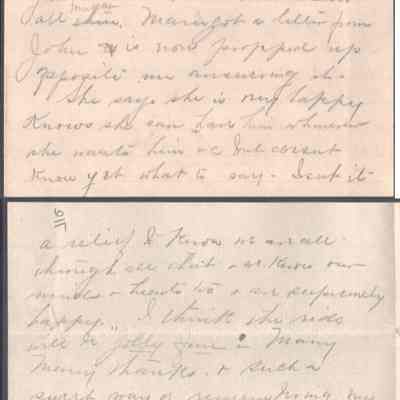 all skin. Mama got a letter from
John & is now propped up
opposite me answering it.
She says she is very happy
Knows she can have him whenever
she wants him &c but doesnt
Know yet what to say. Isnt it
a relief to Know we are all
through all that & we Know our
minds & hearts too & are supremely
happy. I think the rides
will be jolly fun
Many thanks & such a
sweet way of remembering me